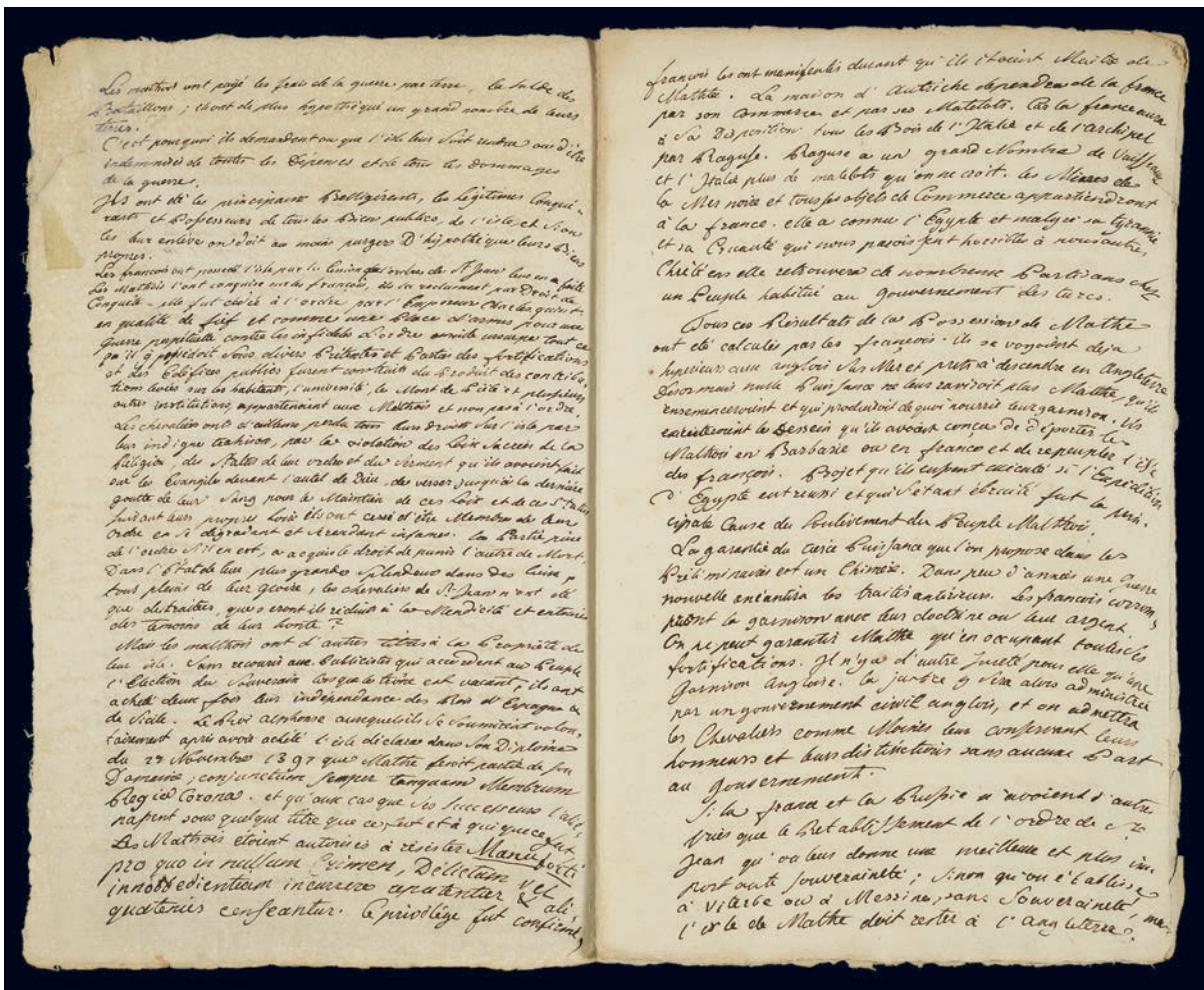 Les maltois ont payé les frais de la guerre par terre, la solde des
Bataillons; ils ont de plus hypothéqué un grand nombre de leurs
terres.
C'est pourquoi ils demandent ou que l'isle leur soit rendue ou d'être
indemnisés de toutes les dépenses et de tous les dommages
de la guerre.
Ils ont été les principaux Belligérents, les légitimes Conqué-
rants et Possesseurs de tous les Biens publics, de l'isle, et si on
les leur enlève on doit au moins purger D'hypothèque leurs Biens
propres.
Les francois ont possedé l'isle par la Cession que l'ordre de St Jean leur en a faite
Les Malthois l'ont conquise sur les françois, ils la reclament par Droit de
Conquête - elle fut cédée à l'ordre par l'Empereur Charles quint
en qualité de fief et comme une Place d'armes pour une
guerre perpétuelle contre les infidèles L'ordre ensuite usurpa tout ce
qu'il y possedoit sous divers Prétextes et Partie des fortifications
et des Edifices publics furent construits du Produit des contribu-
tions levées sur les habitants, l'université, le Mont de Piété et plusieurs
autres institutions appartennient aux Malthois et non pas à l'ordre.
Les chevaliers ont d'ailleurs perdu tous leurs droits sur l'isle par
leur indigne trahison, par la violation des Loix Sacrées de la
Religion, des Statuts de leur ordre et du Serment qu'ils avoient fait
sur les Evangile devant l'autel de Dieu, de verser jusqu'à la dernière
goutte de leur Sang pour le Maintien de ces Loix et de ces Statuts
suivant leurs propres Loix ils ont cessé d'être Membres de leur
ordre en se dégradant et se rendant infames. La Partie saine
de l'ordre s'il en est, a acquis le droit de punir l'autre de Mort.
Dans l'Etat de leur plus grande Splendeur dans des lieux
tous pleins de leur gloire, les chevaliers de St Jean n'ont été
que des traitres, que seront ils réduits à la Mendicité et entourés
des témoins de leur honte?
Mais les malthois ont d'autres titres à la Propriété de
leur isle. Sans recourir aux Publicistes qui accordent au Peuple
l'Election du Souverain lorsque le trône est vacant, ils ont
acheté deux fois leur indépendance des Rois d'Espagne &
de Sicile. Le Roi alphonse auxquels ils se soumirent volon-
tairement après avoir acheté l'isle déclara dans son Diplome
du Novembre 1397 que Malthe feroit partie de son
Domaine; conjunctum semper tanquam Membrum
Regiæ Corona. et qu'aux cas que ses Successeurs l'alié-
nassent sous quelque titre que ce fut et à qui que ce fut
Les Malthois étoient autorisés à résister Manu forti
pro quo in nullum Crimen, Delictum vel
innobedientiam incurrere
quatenus censeantur. Ce privilège fut confirmé,
françois les ont manifestés durant qu'ils étoient Maitres de
Malthe. La maison d'Autriche dependra de la france
par son Commerce et par ses Matelots. Car la france aura
à Sa Disposition tous les Bois de l'Italie et de l'archipel
par Raguse. Raguse a un grand Nombre de Vaisseaux
et l'Italie plus de matelots qu'on ne croit. les
la Mer noire et tous ses objets de Commerce appartiendront
à la france. elle a connu l'Egypte et malgré sa tyrannie
et sa Cruauté qui nous paroissent horribles à nous autres
Chrétiens elle retrouvera de nombreux Partisans chez
un Peuple habitué au gouvernement des turcs.
Tous ces Résultats de la Possession de Malthe
ont été calculés par les françois. ils se voyoient déja
supérieurs aux anglois sur Mer et prets à descendre en Angleterre
Desormais nulle Puissance ne leur raviroit plus Malthe, qu'ils
ensemenceroient et qui produiroit de quoi nourrir leur garnison. ils
executeroient le Dessein qu'ils avoient conçu de déporter les
Malthois en Barbarie ou en france et de repeupler l'isle
des françois. Projet qu'ils eussent exécuté si l'Expédition
d'Egypte eut reussi et qui s'étant ébruité fut la prin-
cipale Cause du soulèvement du Peuple Malthois.
La garantie du tierce Puissance que l'on propose dans les
Préliminaires est un Chimère. Dans peu d'années une Guerre
nouvelle anéantira les traités antérieurs. Les francois corrom-
pront la garnison avec leur doctrine ou leur argent.
On ne peut garantir Malthe qu'en occupant toutes les
fortifications. Il n'y a d'autre sureté pour elle qu'une
Garnison Angloise. La justice y sera alors administrée
par un gouvernement civil anglois, et on admettra
les Chevaliers comme Moines leur conservant leurs
honneurs et leurs distinctions sans aucune Part
au gouvernement.
Si la france et la Russie n'avoient d'autre
vues que le Retablissement de l'ordre de St
Jean qu'on leur donne une meilleure et plus im-
portante Souveraineté; Sinon qu'on l'établisse
à Viterbe ou à Messine, sans Souveraineté, mais
l'isle de Malthe doit rester à l'Angleterre.